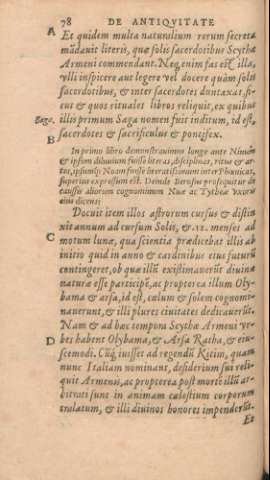 78 DE ANTIQVITATE
A Et quidem multa naturalium rerum secreta
mãdauit literis, quæ solis sacerdotibus Scythæ
Armeni commendant. Neq; enim fas est illa,
vlli inspicere aut legere vel docere quàm solis
sacerdotibus, & inter sacerdotes duntaxat, si-
cut & quos rituales libros reliquit, ex quibus
Saga. illis primum Saga nomen fuit inditum, id est,
sacerdotes & sacrificulus & pontifex.
B
In primo libro demonstrauimus longe ante Ninum
& ipsum diluuium fuisse literas, disciplinas, ritus & ar-
tes, ipsumq; Noam fuisse
superius expressum est. Deinde Berosus prosequitur de
caussis aliorum cognominum Noæ ac Tytheæ vxoris
eius dicens:
Docuit item illos astrorum cursus & distin
xit annum ad cursum Solis, & .12. menses ad
C motum lunæ, qua scientia prædicebat illis ab
initio quid in anno & cardinibus eius futurũ
contingeret, ob quæ illũ existimauerũt diuinæ
naturæ esse participẽ, ac propterea illum Oly-
bama & arsa, id est, cælum & solem cognomi-
nauerunt, & illi plures ciuitates dedicauerũt.
Nam & ad hæc tempora Scythæ Armeni vr-
D bes habent Olybama, & Arsa Ratha, & eiu-
scemodi. Cũq; iuisset ad regendũ Kitim, quam
nunc Italiam nominant, desiderium sui reli-
quit Armenis, ac propterea post mortẽ illũ ar-
bitrati sunt in animam cælestium corporum
tralatum, & illi diuinos honores impenderũt.
Et